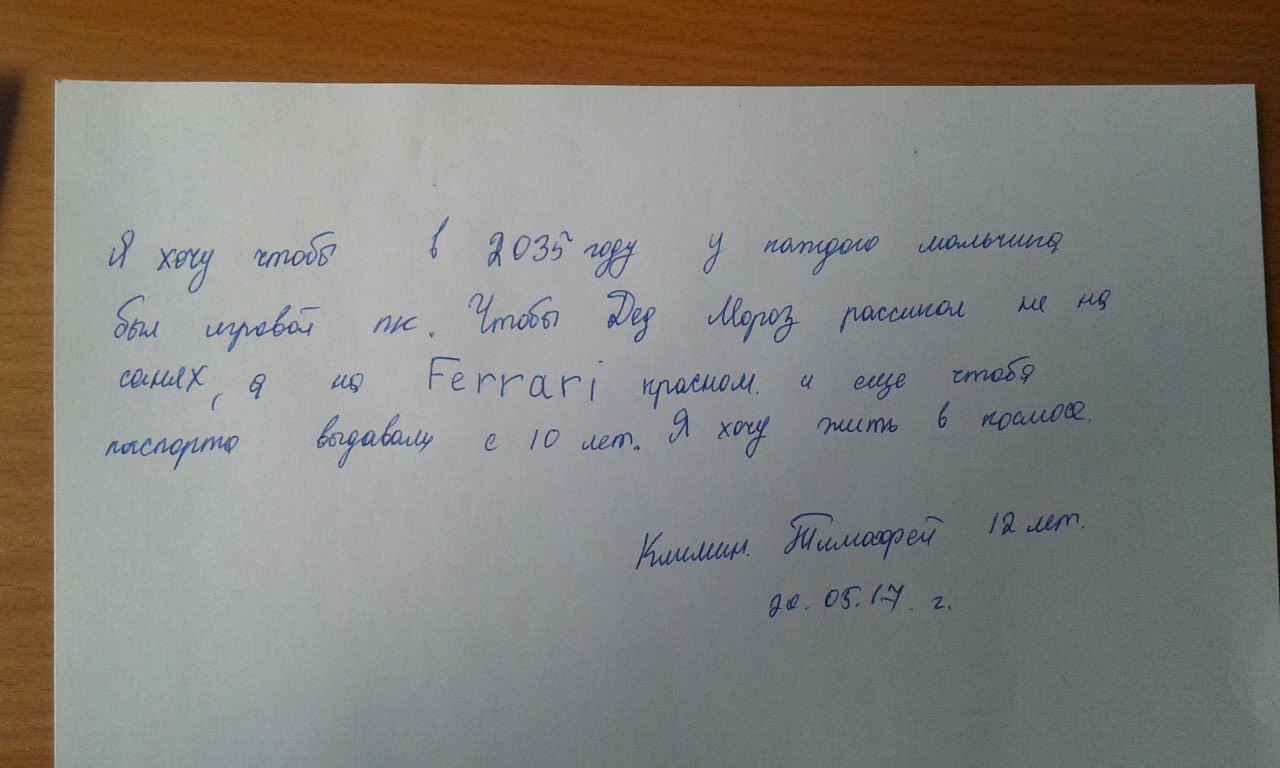 Я хочу чтобы в 2035 году у каждого мальчика
был игровой пк. Чтобы Дед Мороз рассикал не на
санях, а на Ferrari красном. и еще чтобы
паспорта выдавали с 10 лет. Я хочу жить в космосе.
Климин. Тимофей 12 лет.
20.05.17. г.